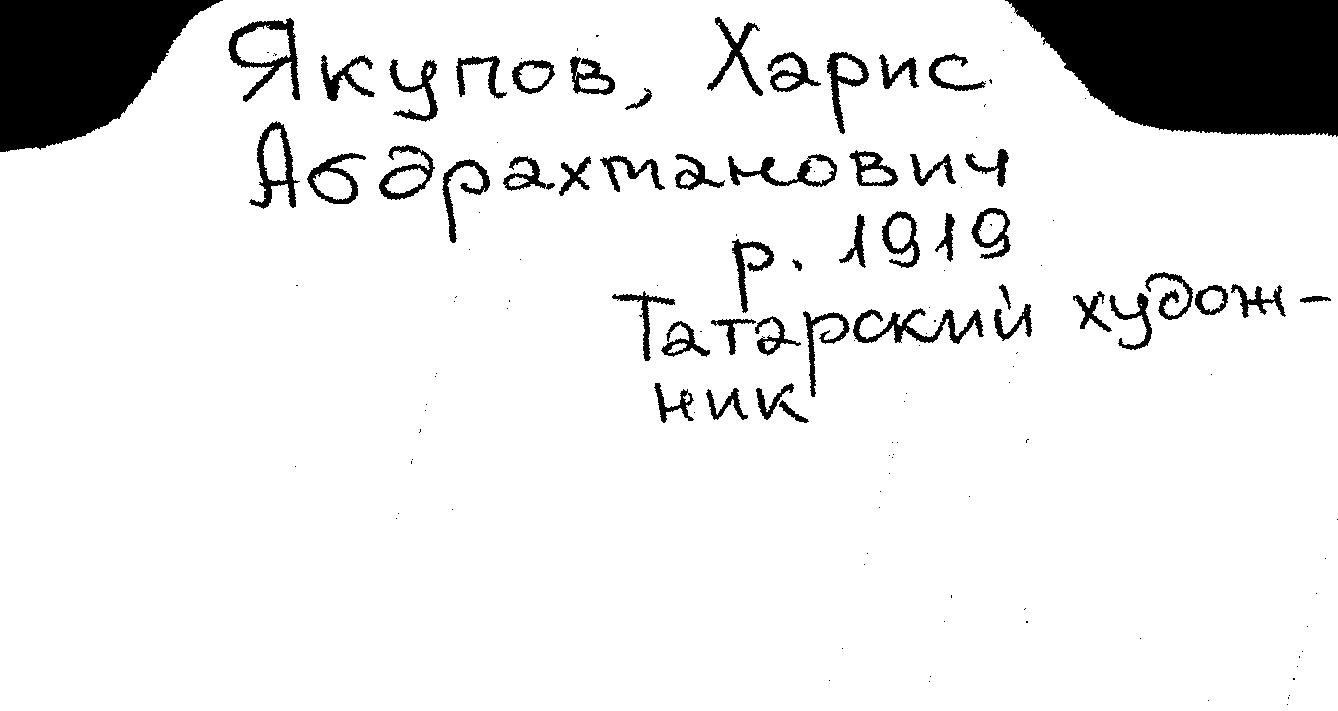 Якупов, Харис
Абдрахманович
р. 1919
Татарский худож-
ник